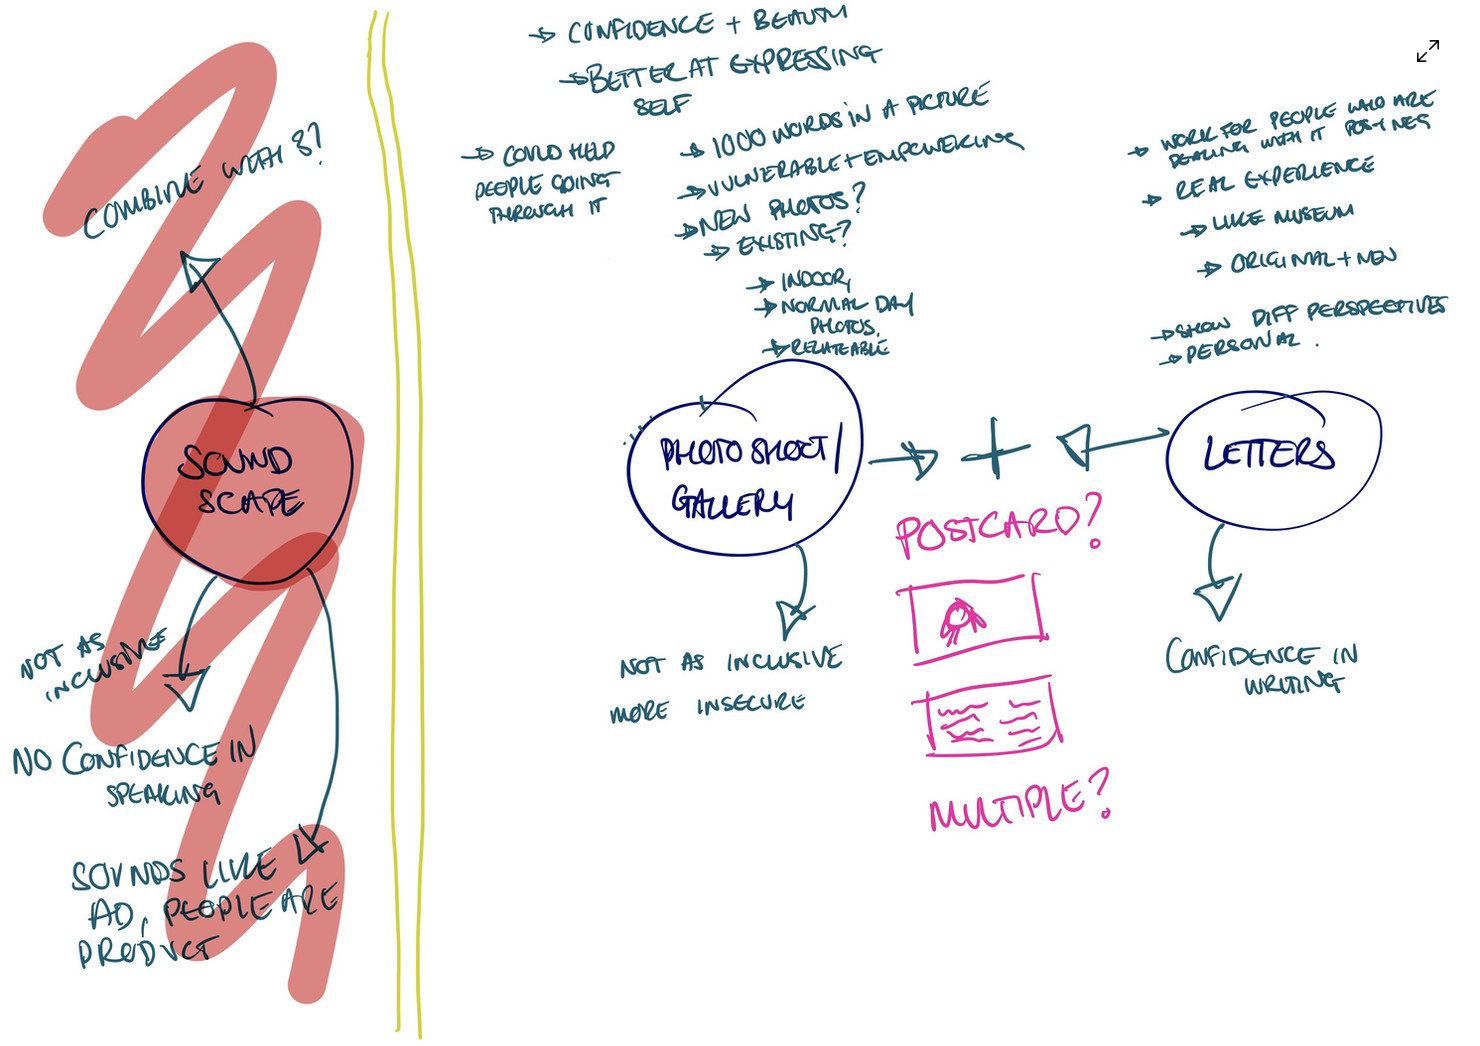 COMBINE WITH 3?
SOUND
SCAPE
NOT AS
INCLUSIVE
NO CONFIDENCE IN
SPEAKING
SOUNDS LIKE
AD, PEOPLE ARE
PRODUCT
→ CONFIDENCE + BEAUTY
→ BETTER AT EXPRESSING
SELF
→ COULD HELP
PEOPLE GOING
THROUGH IT
→ 1000 WORDS IN A PICTURE
→ VULNERABLE + EMPOWERING
→ NEW PHOTOS?
→ EXISTING?
→ INDOOR,
→ NORMAL DAY
PHOTOS.
→ RELATEABLE
PHOTOSHOOT/
GALLERY
NOT AS INCLUSIVE
MORE INSECURE
+
POSTCARD?
MULTIPLE?
→ WORK FOR PEOPLE WHO ARE
DEALING WITH IT POS + NEG
→ REAL EXPERIENCE
→ LIKE MUSEUM
→ ORIGINAL + NEW
→ SHOW DIFF PERSPECTIVES
→ PERSONAL.
LETTERS
CONFIDENCE IN
WRITING